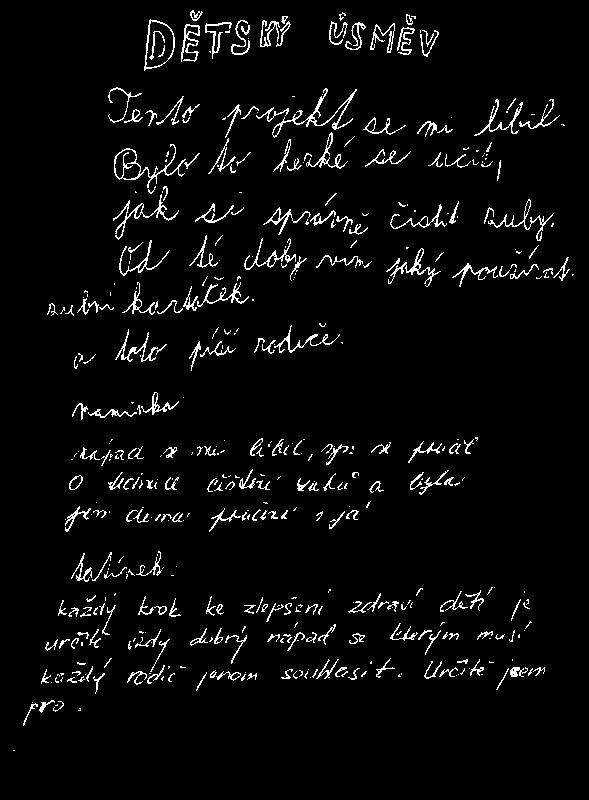 DĚTSKÝ ÚSMĚV
Tento projekt se mi líbil.
Bylo to hezké se učit,
jak si správně čistit zuby.
Od té doby vím jaký používat
zubní kartáček.
a toto píší rodiče.
maminka
nápad se mi líbil, syn se poučil
o technice čištění zubů a byla
jsem doma poučena i já
tatínek:
každý krok ke zlepšení zdraví dětí je
určitě vždy dobrý nápad se kterým musí
každý rodič jenom souhlasit. Určitě jsem
pro.